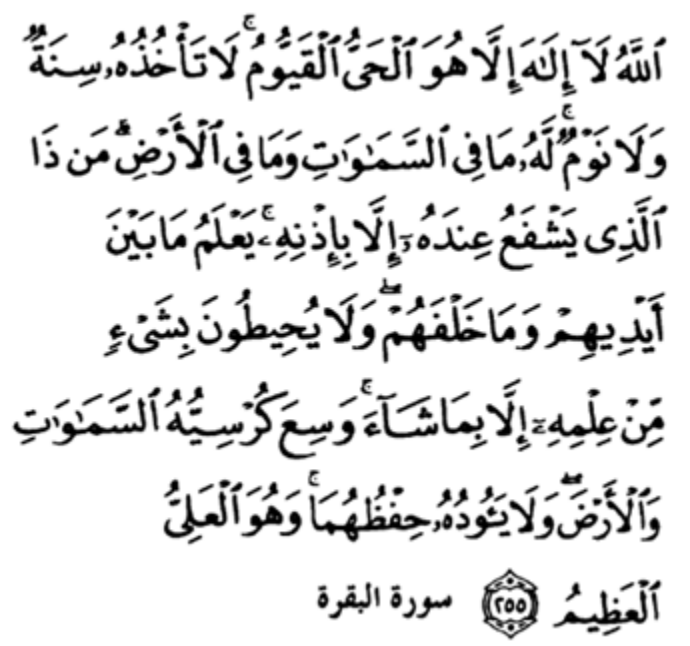 ٱللَّهُ لَآ إِلَٰهَ إِلَّا هُوَ ٱلْحَىُّ ٱلْقَيُّومُ ۚ لَا تَأْخُذُهُۥ سِنَةٌ
وَلَا نَوْمٌ ۚ لَّهُۥ مَا فِى ٱلسَّمَٰوَٰتِ وَمَا فِى ٱلْأَرْضِ ۗ مَن ذَا
ٱلَّذِى يَشْفَعُ عِندَهُۥٓ إِلَّا بِإِذْنِهِۦ ۚ يَعْلَمُ مَا بَيْنَ
أَيْدِيهِمْ وَمَا خَلْفَهُمْ ۖ وَلَا يُحِيطُونَ بِشَىْءٍ
مِّنْ عِلْمِهِۦٓ إِلَّا بِمَا شَآءَ ۚ وَسِعَ كُرْسِيُّهُ ٱلسَّمَٰوَٰتِ
وَٱلْأَرْضَ ۖ وَلَا يَـُٔودُهُۥ حِفْظُهُمَا ۚ وَهُوَ ٱلْعَلِىُّ
ٱلْعَظِيمُ ۝٢٥٥ سورة البقرة